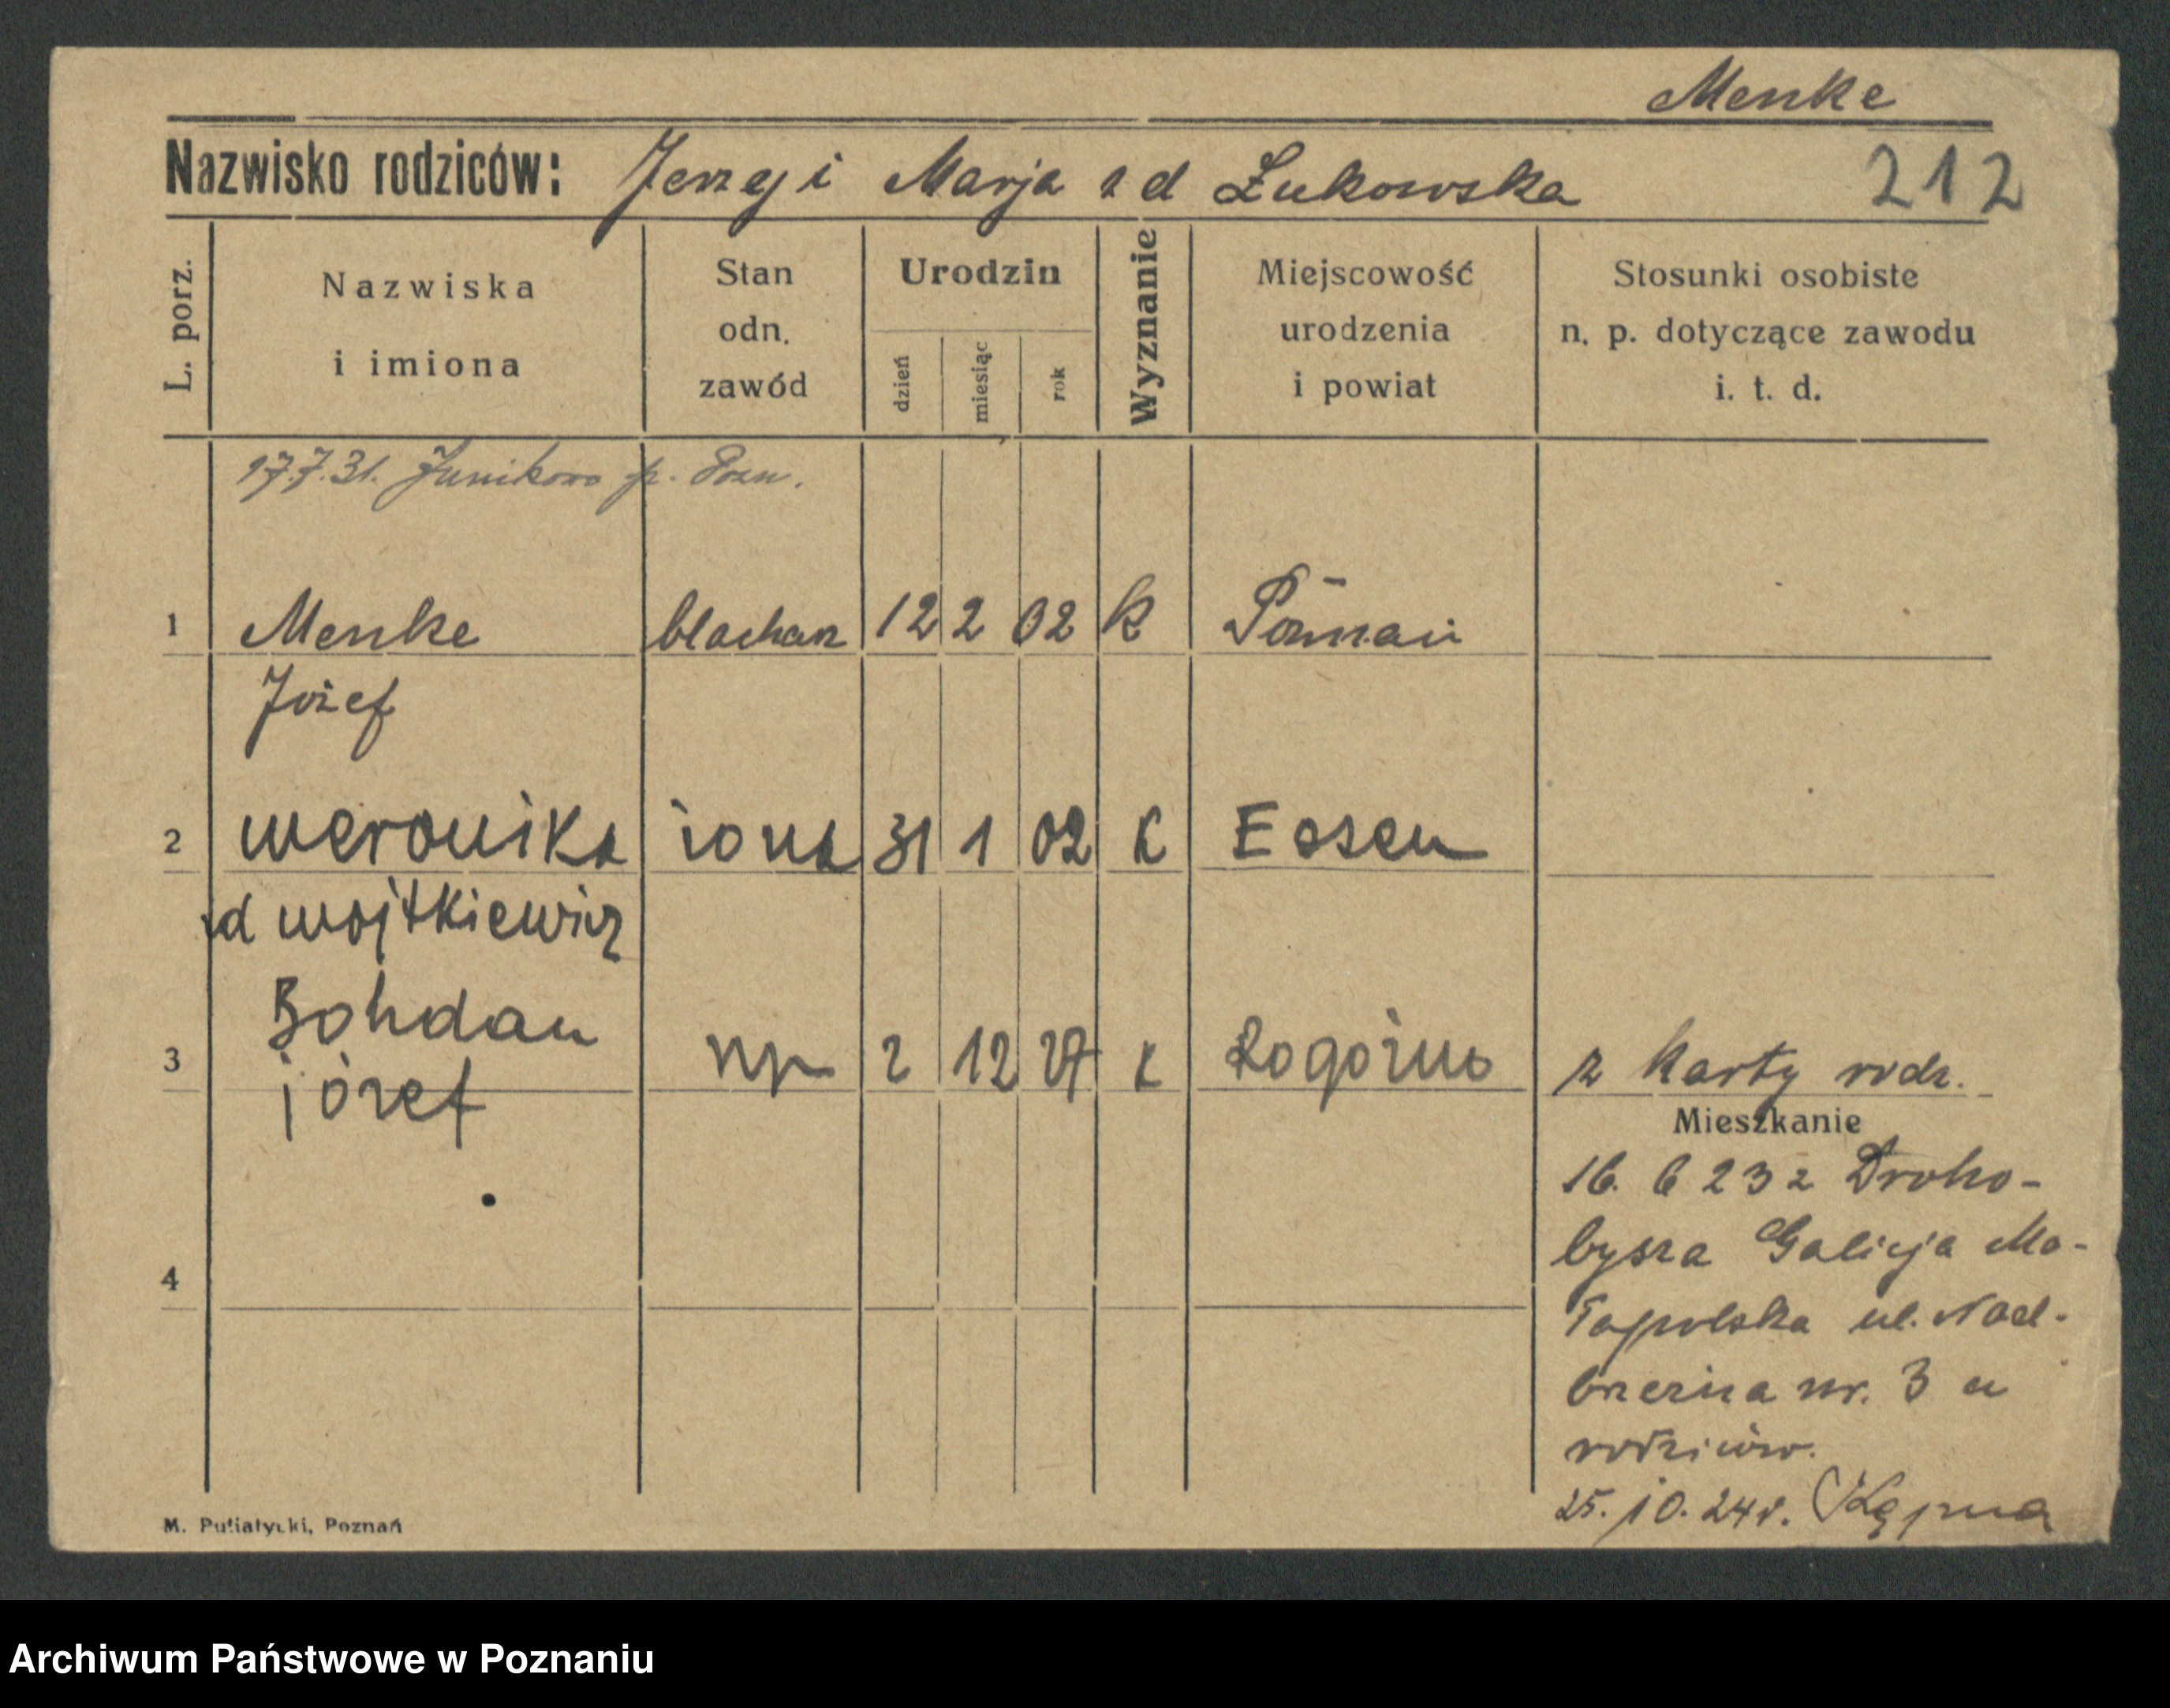 Menke
Nazwisko rodziców: Jerzy i Marja zd Żukowska 212
L. porz.
Nazwiska i imiona
Stan odn. zawód
Urodzin
dzień miesiąc rok
Wyznanie
Miejscowość urodzenia i powiat
Stosunki osobiste n. p. dotyczące zawodu i. t. d.
17.7.31. Junikowo p. Pozn.
1 Menke blacharz 12 2 02 k Poznań
Józef
2 weronika żona 31 1 02 k Essen
zd wojtkiewicz
Bohdan
3 józef np 2 12 27 k Rogoźno z karty rodz.
Mieszkanie
16. 6 23 z Droho-
bysza Galicja Ma-
łopolska ul. Nad-
brzeżna nr. 3 u
rodziców.
4
25. 10. 24 r.
M. Putiatycki, Poznań
Archiwum Państwowe w Poznaniu